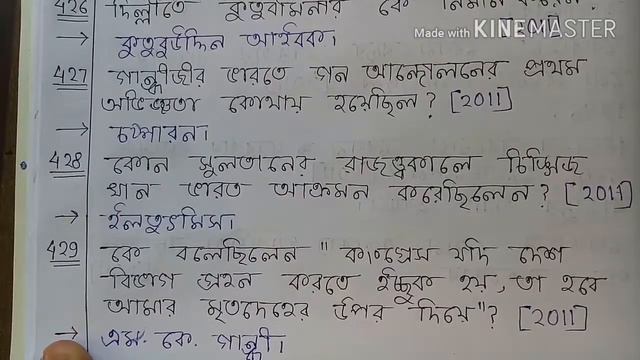 426 দিল্লীতে কুতুবমিনার কে নির্মান করেন?
Made with KINEMASTER
[2011]
→ কুতুবউদ্দিন আইবক।
427 গান্ধীজীর ভারতে গন আন্দোলনের প্রথম
অভিজ্ঞতা কোথায় হয়েছিল? [2011]
→ চম্পারন।
428 কোন সুলতানের রাজত্বকালে চিঙ্গিজ
খান ভারত আক্রমন করেছিলেন? [2011]
→ ইলতুৎমিস।
429 কে বলেছিলেন "কংগ্রেস যদি দেশ
বিভাগ গ্রহন করতে ইচ্ছুক হয়, তা হবে
আমার মৃতদেহের উপর দিয়ে"? [2011]
→ এম. কে. গান্ধী।